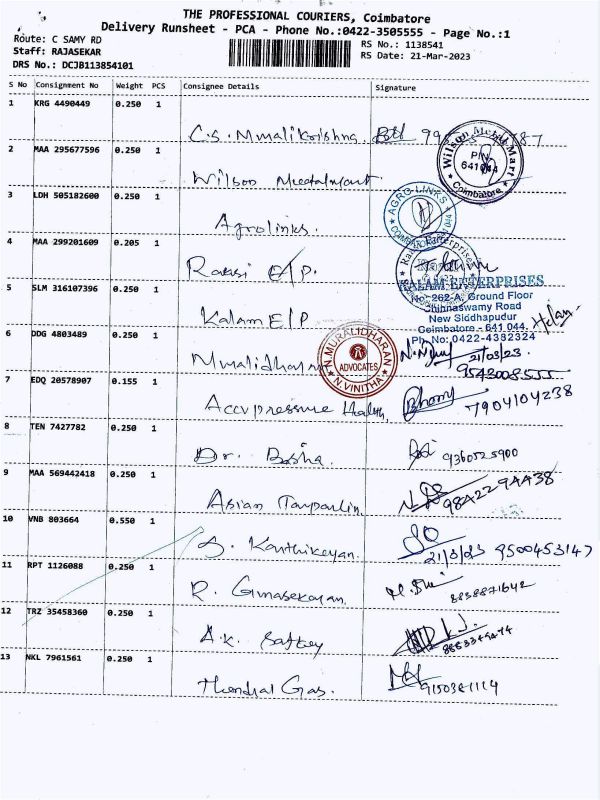 THE PROFESSIONAL COURIERS, Coimbatore
Delivery Runsheet - PCA - Phone No.:0422-3505555 - Page No.:1
Route: C SAMY RD
RS No.: 1138541
Staff: RAJASEKAR
RS Date: 21-Mar-2023
DRS No.: DCJB113854101
S No Consignment No Weight PCS Consignee Details Signature
1 KRG 4490449 0.250 1
C.S. Muralikrishna
2 MAA 295677596 0.250 1
Wilson Metal Mart
PIN
641044
Coimbatore
Wilson Metalmart
3 LDH 505182600 0.250 1
AGRO-LINKS
Agrolinks.
4 MAA 299201609 0.205 1
E/P.
5 SLM 316107396 0.250 1
KALAM ENTERPRISES
No: 262-A, Ground Floor
Chinnaswamy Road
New Siddhapudur
Coimbatore - 641 044.
Ph No: 0422-4382324
Kalam E/P
6 DDG 4803489 0.250 1
N.MURALIDHARAN
ADVOCATES
N.VINITHA
Muralidharan
21/03/23.
7 EDQ 20578907 0.155 1
Accupressure Health,
7904104238
8 TEN 7427782 0.250 1
Dr. Basha.
9360525900
9 MAA 569442418 0.250 1
Asian Tarpaulin
9842294438
10 VNB 803664 0.550 1
S. Karthikeyan.
21/3/23 9500453147
11 RPT 1126088 0.250 1
R. Gunasekaran.
8838871642
12 TRZ 35458360 0.250 1
A.K.
13 NKL 7961561 0.250 1
Thendral Gas.
9150381114